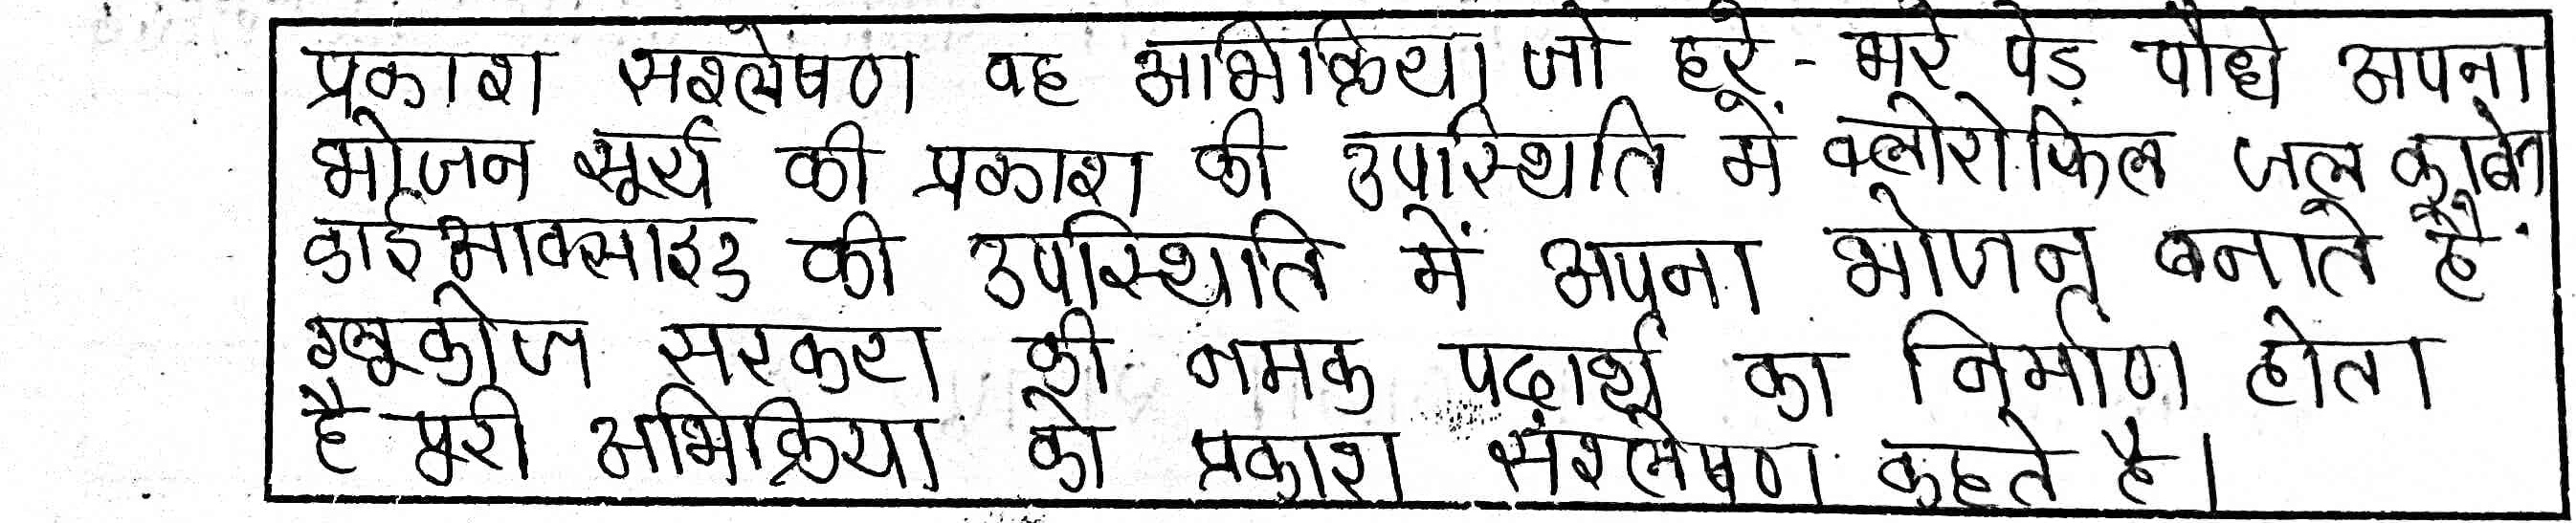 प्रकाश सश्लेषण वह अभिक्रिया जो हरे - भरे पेड़ पौधे अपना
भोजन सूर्य की प्रकाश की उपस्थिति में क्लोरोफिल जल कार्बन
डाईआक्साइड की उपस्थिति में अपना भोजन बनाते है।
ग्लूकोज सरकरा की नमक पदार्थ का निर्माण होता
है पूरी अभिक्रिया को प्रकाश संश्लेषण कहते है।